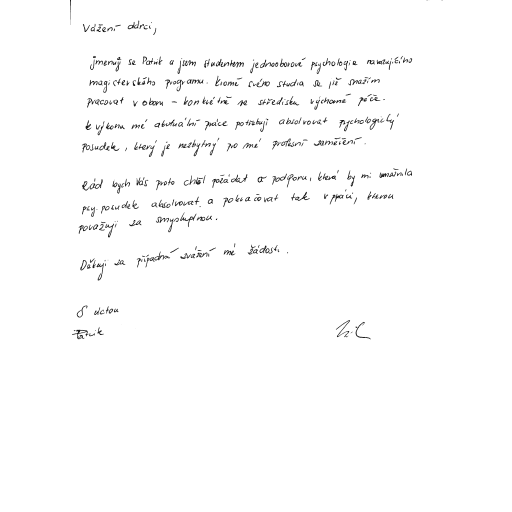 Vážení dárci,
jmenuji se Patrik a jsem studentem jednooborové psychologie navazujícího
magisterského programu. Kromě svého studia se již snažím
pracovat v oboru – konkrétně ve středisku výchovné péče.
K výkonu mé aktuální práce potřebuji absolvovat psychologický
posudek, který je nezbytný pro mé profesní zaměření.
Rád bych Vás proto chtěl požádat o podporu, která by mi umožnila
psy. posudek absolvovat a pokračovat tak v práci, kterou
považuji za smysluplnou.
Děkuji za případná zvážení mé žádosti.
S úctou
Patrik